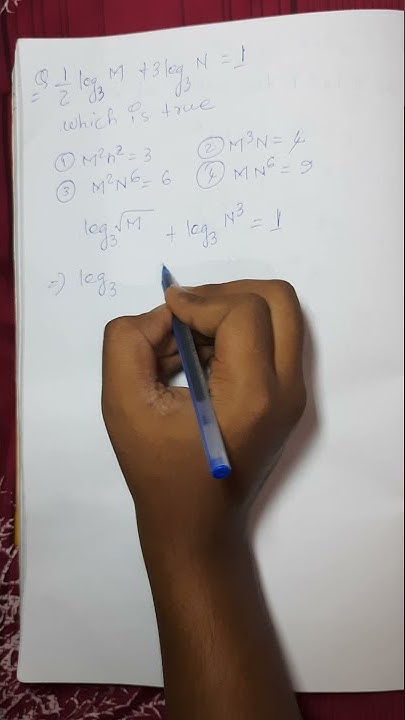 Q 1/2 log₃ M + 3 log₃ N = 1
which is true
① M²n² = 3 ② M³N = 4
③ M²N⁶ = 6 ④ MN⁶ = 9
log₃ √M + log₃ N³ = 1
⇒ log₃